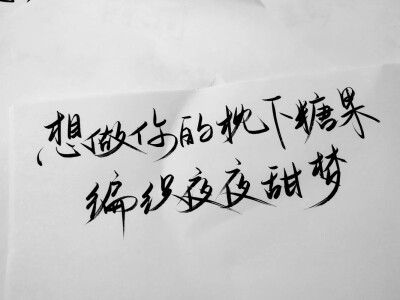 想做你的枕下糖果
编织夜夜甜梦